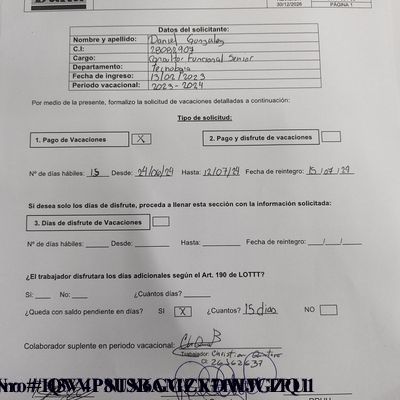 30/12/2026
PÁGINA 1
Datos del solicitante:
Nombre y apellido: Daniel Gonzalez
C.I: 28082907
Cargo: Consultor Funcional Senior
Departamento: Tecnología
Fecha de ingreso: 13/02/2023
Periodo vacacional: 2023-2024
Por medio de la presente, formalizo la solicitud de vacaciones detalladas a continuación:
Tipo de solicitud:
1. Pago de Vacaciones X 2. Pago y disfrute de vacaciones
Nº de días hábiles: 15 Desde: 24/06/24 Hasta: 12/07/24 Fecha de reintegro: 15/07/24
Si desea solo los días de disfrute, proceda a llenar esta sección con la información solicitada:
3. Días de disfrute de Vacaciones
Nº de días hábiles: Desde: Hasta: Fecha de reintegro: / /
¿El trabajador disfrutara los días adicionales según el Art. 190 de LOTTT?
Si: No: ¿Cuántos días?
¿Queda con saldo pendiente en días? SI X ¿Cuantos? 15 días NO
Colaborador suplente en periodo vacacional:
Trabajador: Christian